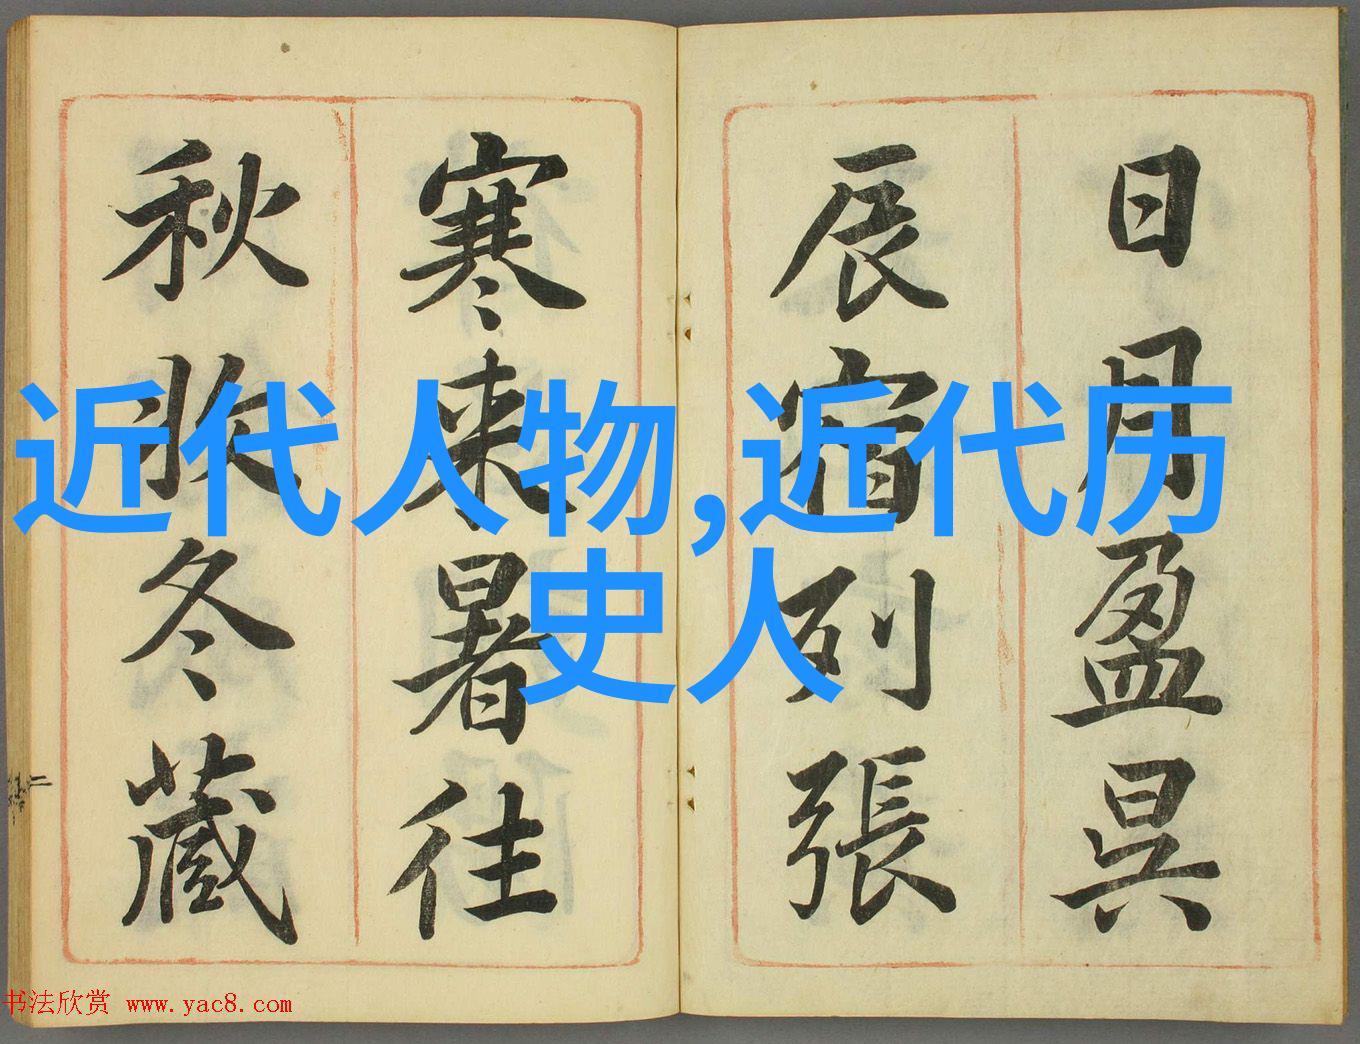 日月盈昃
辰宿列張
寒来暑往
秋收冬藏
近代人物,近代历
史人
书法欣赏 www.yac8.com